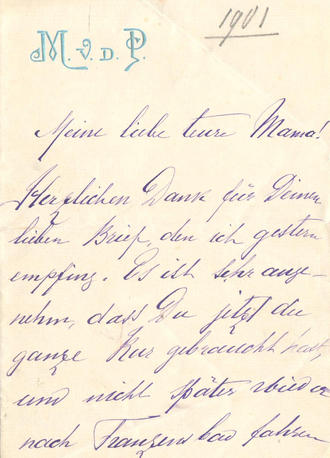 1901
M. v. D. P.
Meine liebe teure Mama!
Herzlichen Dank für Deinen
lieben Brief, den ich gestern
empfing. Es ist sehr ange-
nehm, dass Du jetzt die
ganze Kur gebraucht hast,
und nicht später wieder
nach Franzensbad fahren